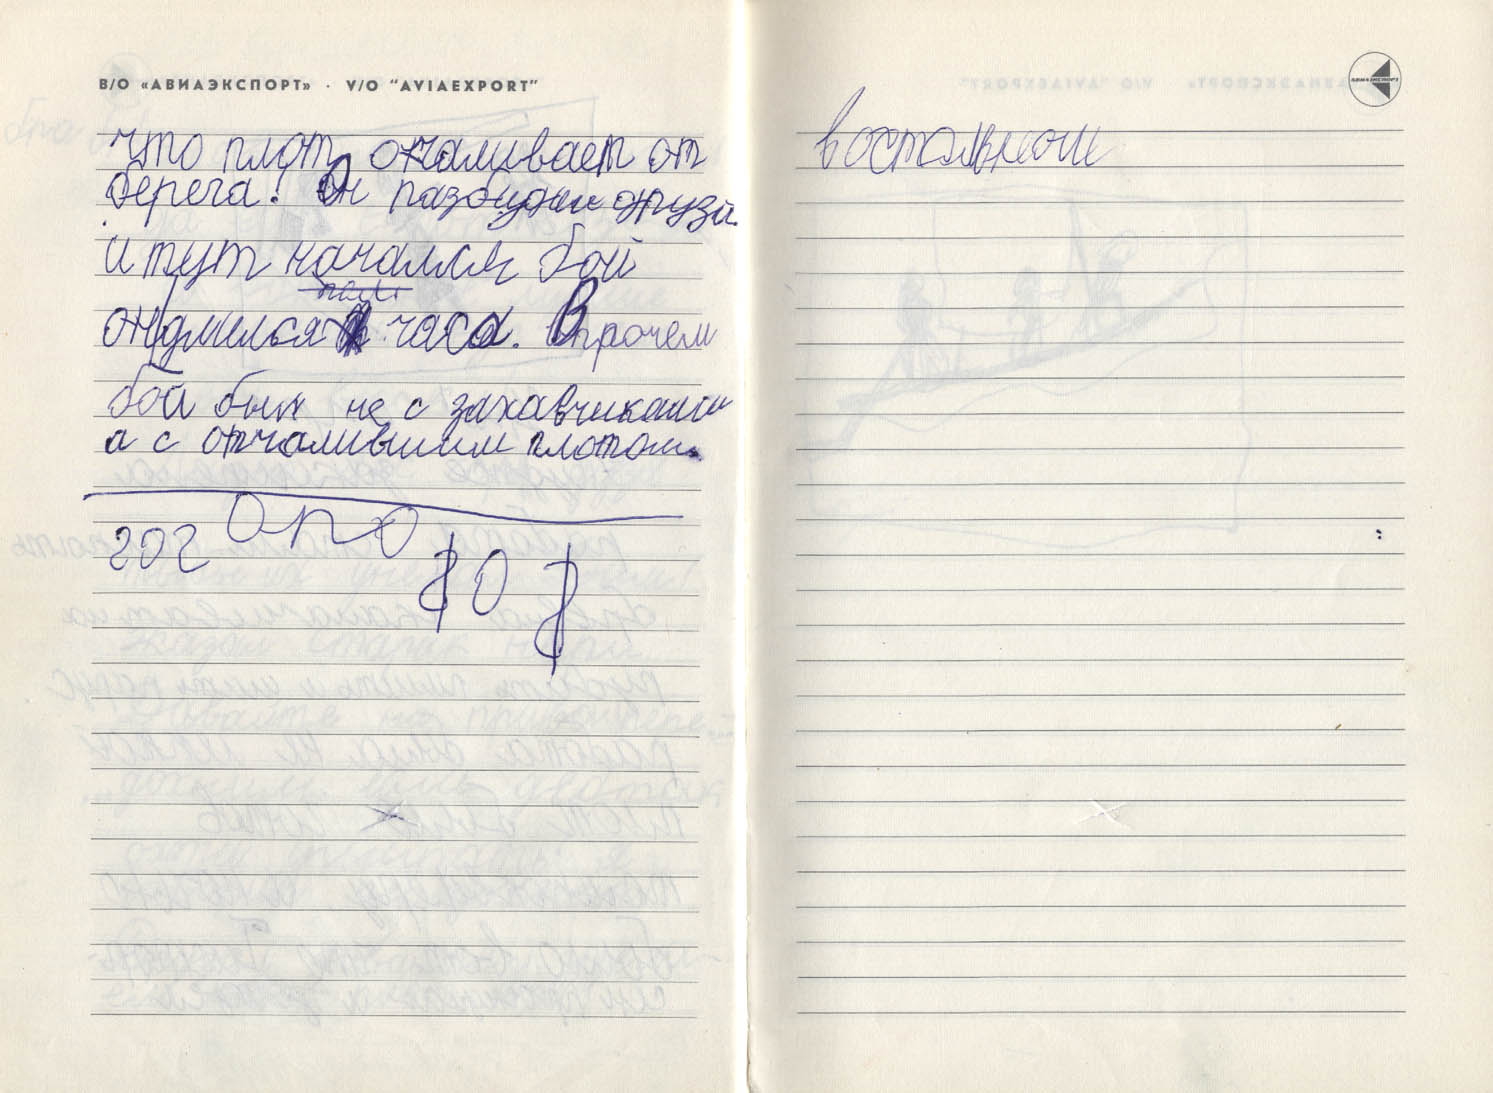 В/О «АВИАЭКСПОРТ» · V/O "AVIAEXPORT"
что плот отчаливает от
берега! Он разбудил друзй.
и тут начался бой
он длился часа. Впрочем
бой был не с захавчиками
а с отчалившим плотом.
АВИАЭКСПОРТ
в остальном